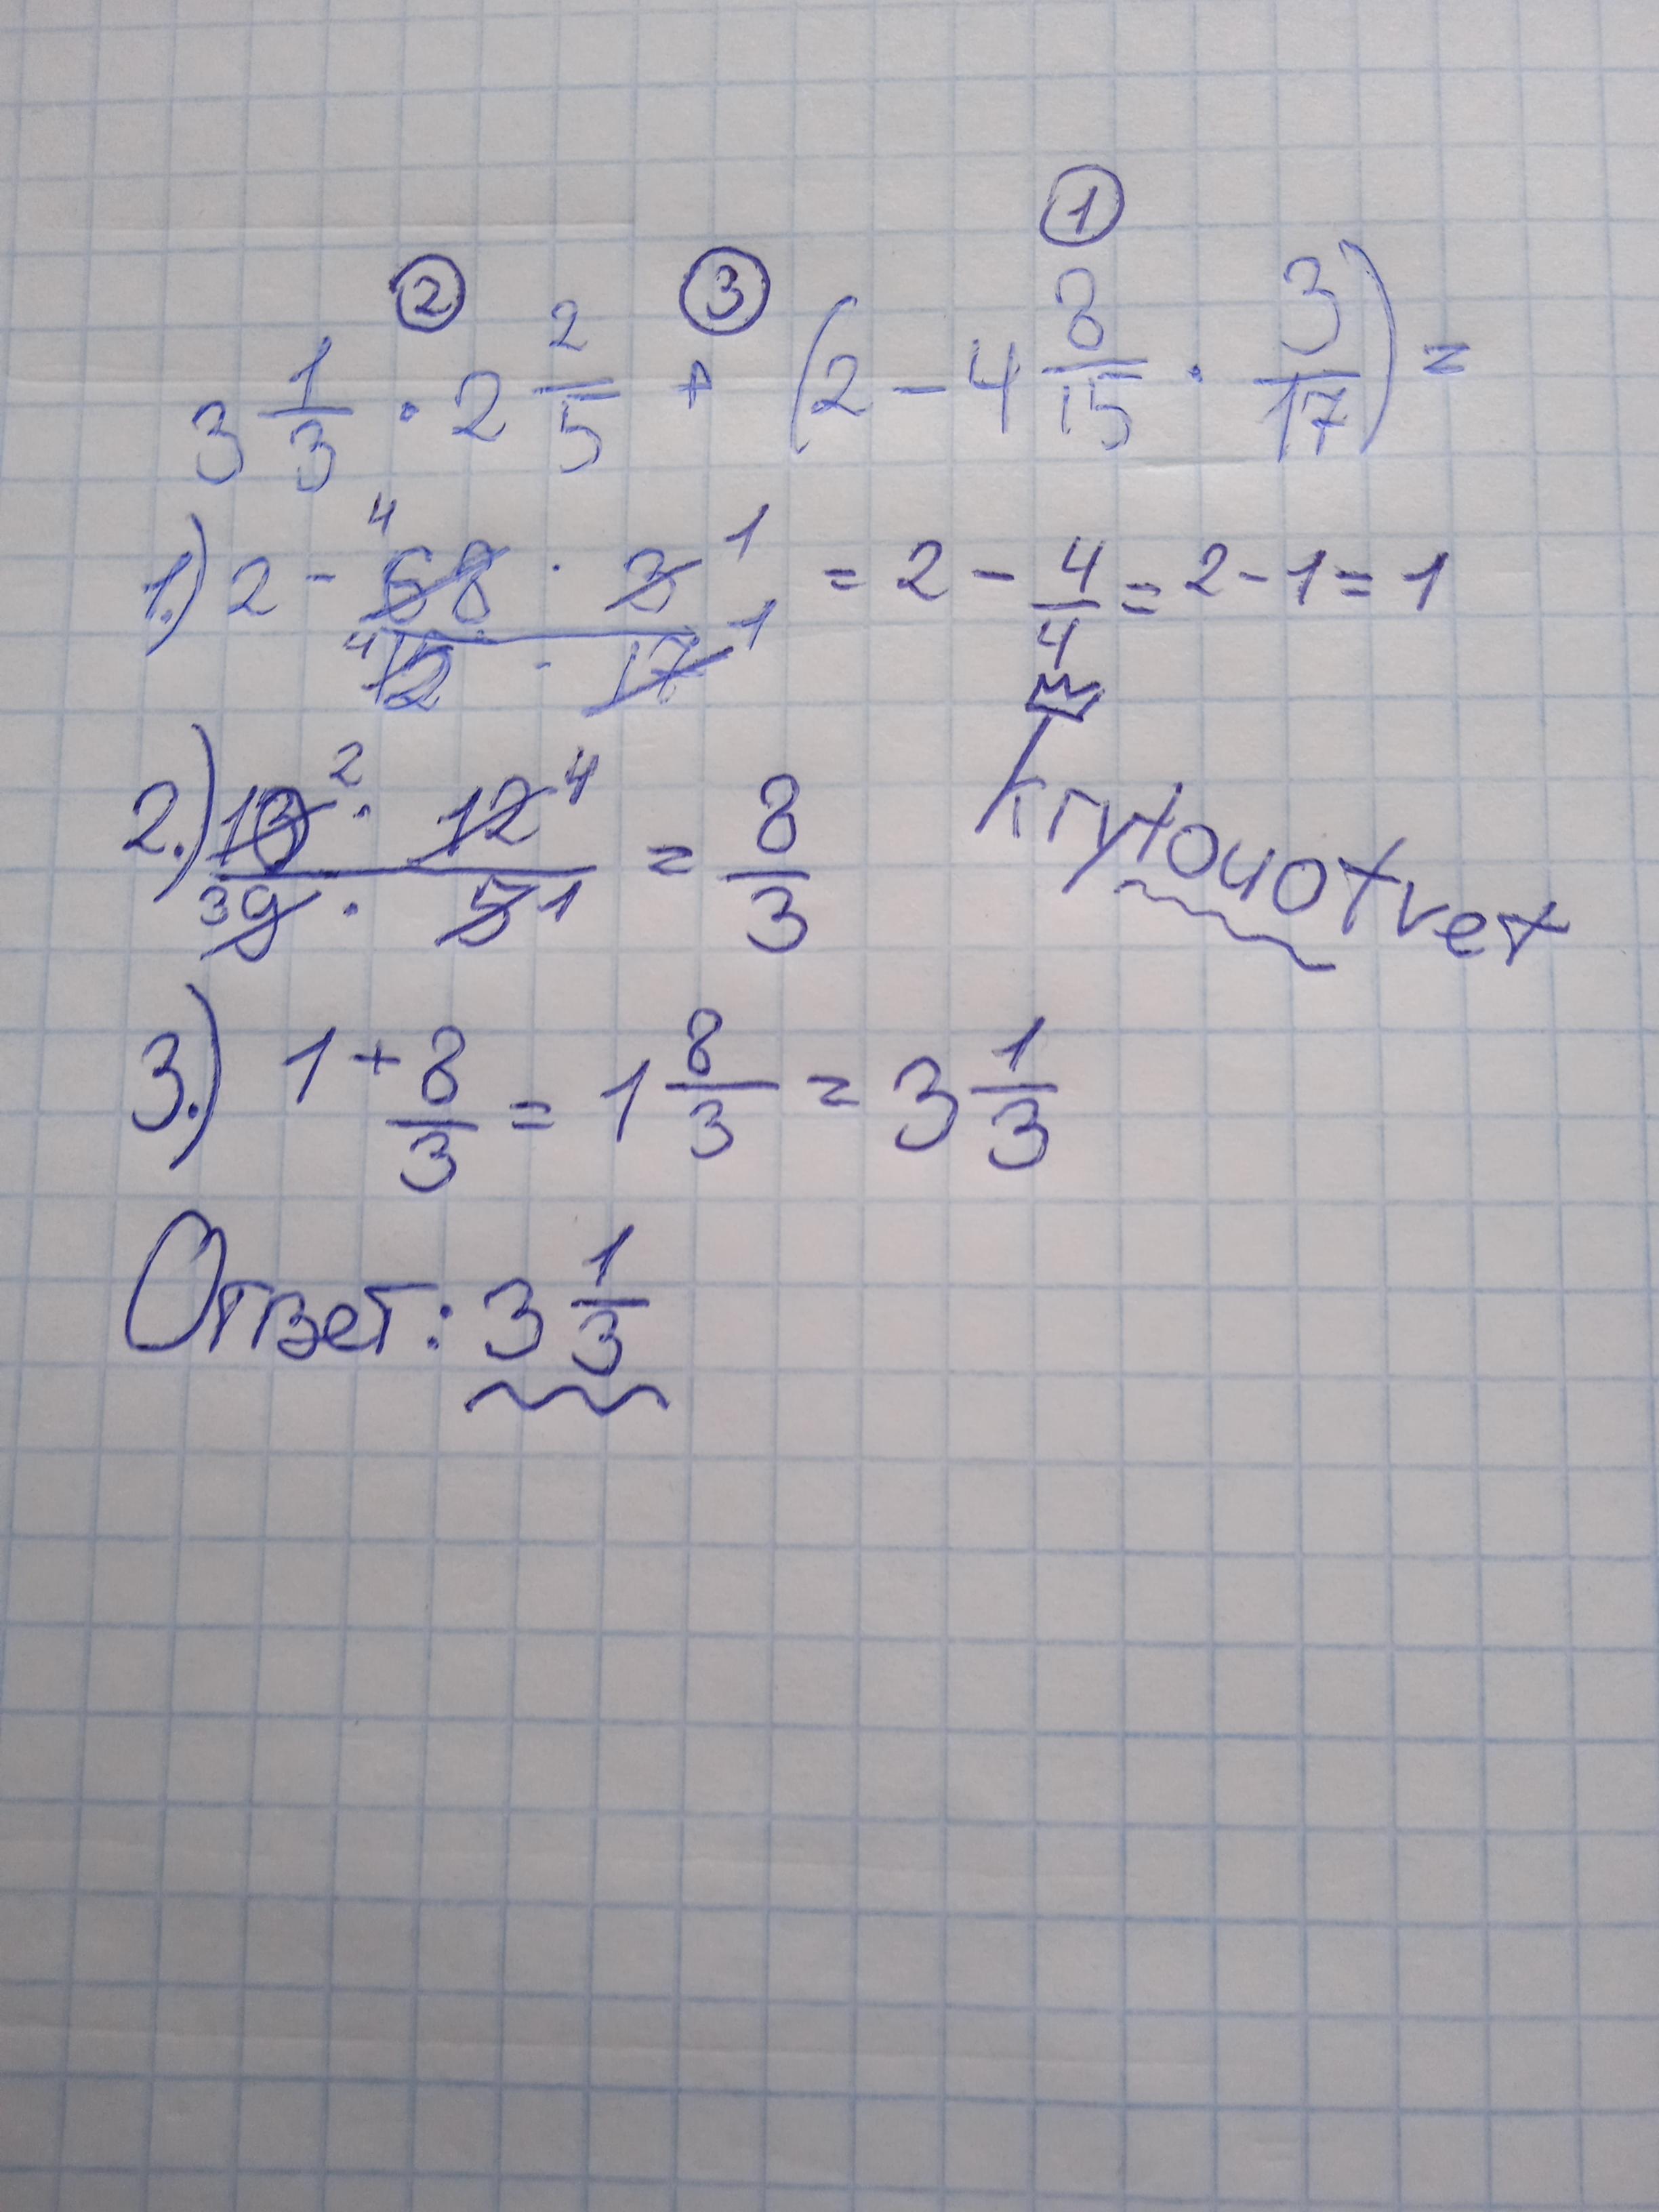 ② ③ ①
3 1/3 · 2 2/5 + (2 - 4 8/15 · 3/17) =
1.) 2 - (68 · 3)/(12 · 17) = 2 - 4/4 = 2 - 1 = 1
4 1 4 1
2.) (10 · 12)/(9 · 5) = 8/3
2 4 3 1
krytouotvet
3.) 1 + 8/3 = 1 8/3 = 3 1/3
Ответ: 3 1/3